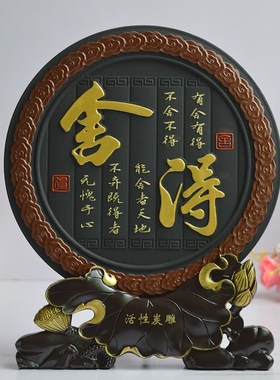 舍得
有舍有得
不舍不得
能舍者天地
不弃既得者
无愧于心
活性炭雕